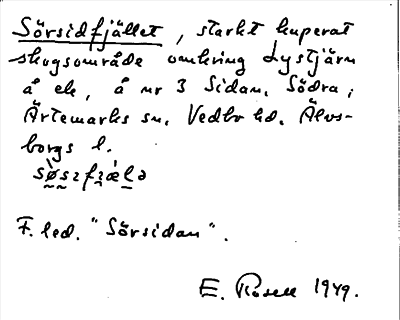 Sörsidfjället, starkt kuperat
skogsområde omkring Lystjärn
å ek, å nr 3 Sidan, Södra,
Ärtemarks sn. Vedbo hd. Älvs-
borgs l.
F. led. "Sörsidan".
E. Rosell 1949.